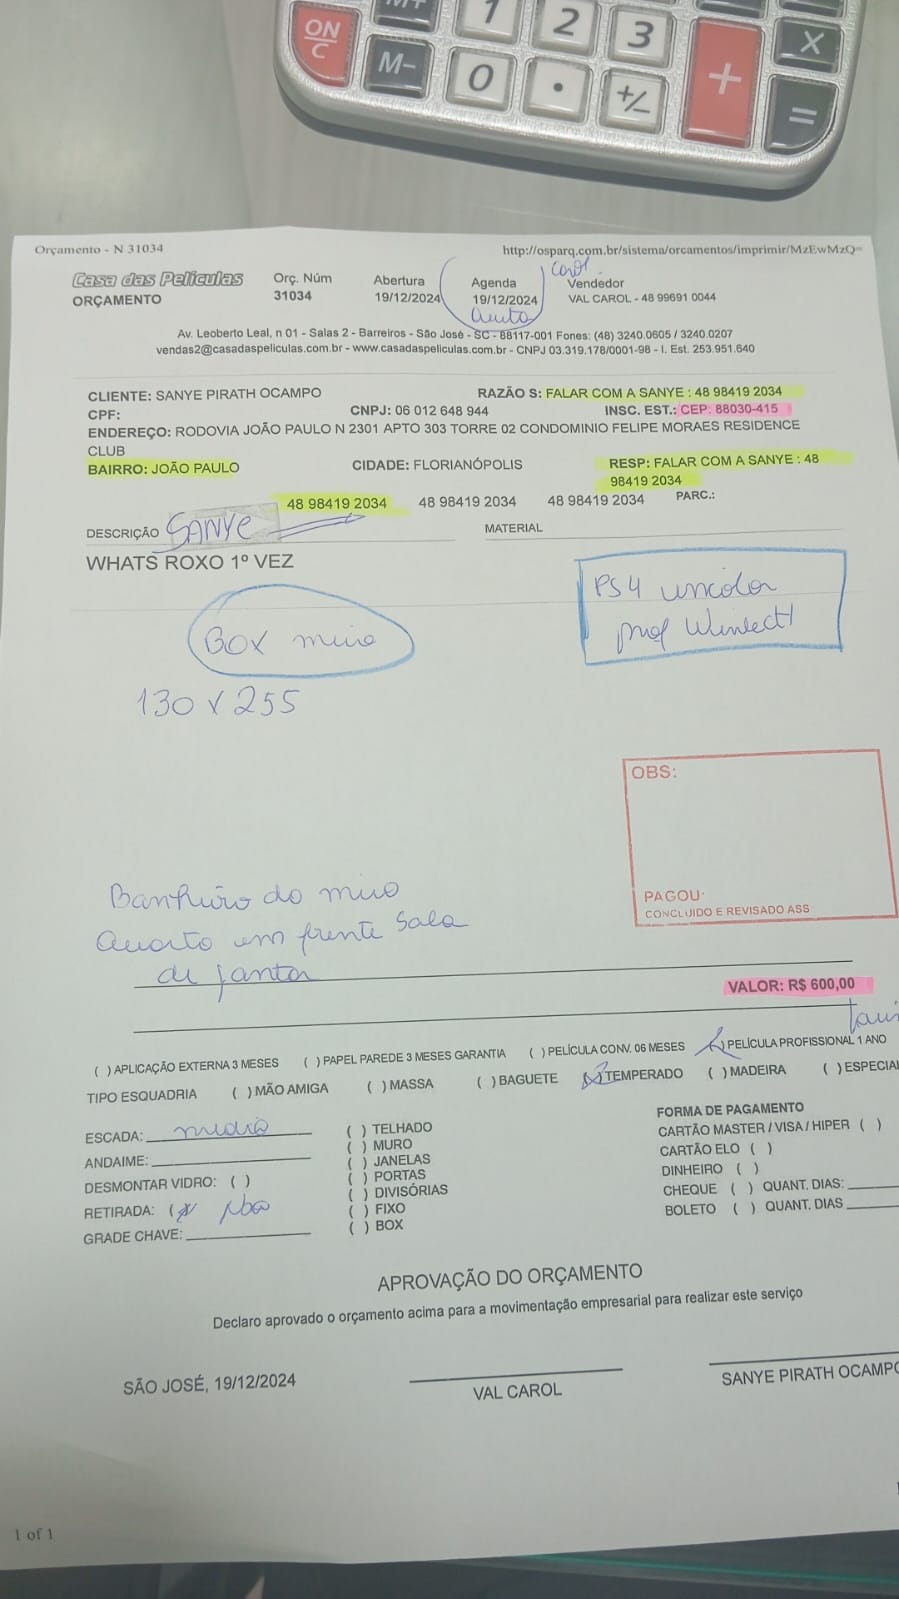 ON
C
M+
1
2
3
X
M-
0
.
+/-
+
=
Orçamento - N 31034
http://osparq.com.br/sistema/orcamentos/imprimir/MzEwMzQ=
Casa das Películas
ORÇAMENTO
Orç. Núm
31034
Abertura
19/12/2024
Agenda
19/12/2024
Carol
Vendedor
VAL CAROL - 48 99691 0044
Av. Leoberto Leal, n 01 - Salas 2 - Barreiros - São José - SC - 88117-001 Fones: (48) 3240.0605 / 3240.0207
vendas2@casadaspeliculas.com.br - www.casadaspeliculas.com.br - CNPJ 03.319.178/0001-98 - I. Est. 253.951.640
CLIENTE: SANYE PIRATH OCAMPO
RAZÃO S: FALAR COM A SANYE : 48 98419 2034
CPF:
CNPJ: 06 012 648 944
INSC. EST.: CEP: 88030-415
ENDEREÇO: RODOVIA JOÃO PAULO N 2301 APTO 303 TORRE 02 CONDOMINIO FELIPE MORAES RESIDENCE
CLUB
BAIRRO: JOÃO PAULO
CIDADE: FLORIANÓPOLIS
RESP: FALAR COM A SANYE : 48
98419 2034
48 98419 2034
48 98419 2034
48 98419 2034
PARC.:
DESCRIÇÃO SANYE
MATERIAL
WHATS ROXO 1º VEZ
PS4 incolor
prof
BOX meio
130 x 255
OBS:
PAGOU:
CONCLUIDO E REVISADO ASS
Banheiro do meio
Quarto em frente Sala
de jantar
VALOR: R$ 600,00
( ) APLICAÇÃO EXTERNA 3 MESES ( ) PAPEL PAREDE 3 MESES GARANTIA ( ) PELÍCULA CONV. 06 MESES (X) PELÍCULA PROFISSIONAL 1 ANO
TIPO ESQUADRIA ( ) MÃO AMIGA ( ) MASSA ( ) BAGUETE (X) TEMPERADO ( ) MADEIRA ( ) ESPECIA
ESCADA: media
ANDAIME:
DESMONTAR VIDRO: ( )
RETIRADA: (X) Não
GRADE CHAVE:
( ) TELHADO
( ) MURO
( ) JANELAS
( ) PORTAS
( ) DIVISÓRIAS
( ) FIXO
( ) BOX
FORMA DE PAGAMENTO
CARTÃO MASTER / VISA / HIPER ( )
CARTÃO ELO ( )
DINHEIRO ( )
CHEQUE ( ) QUANT. DIAS:
BOLETO ( ) QUANT. DIAS
APROVAÇÃO DO ORÇAMENTO
Declaro aprovado o orçamento acima para a movimentação empresarial para realizar este serviço
SÃO JOSÉ, 19/12/2024
VAL CAROL
SANYE PIRATH OCAMPO
1 of 1